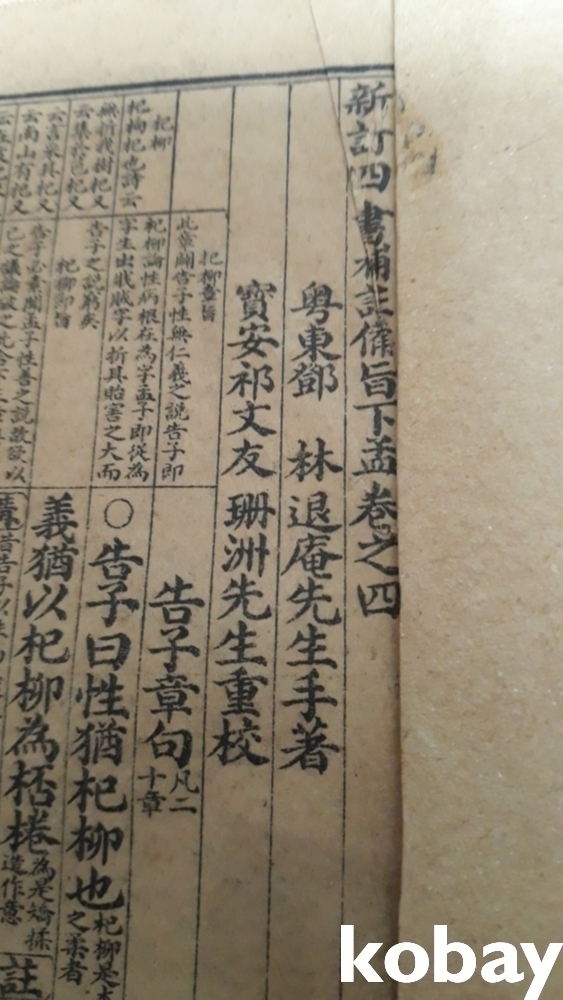 新訂四書補註備旨下孟卷之四
粵東鄧 林 退庵先生手著
寶安祁文友 珊洲先生重校
杞柳章旨
此章闢告子性無仁義之說告子即
杞柳論性病根在為字孟子即從為
字生出戕賊字以折其貽害之大而
告子之說窮矣
杞柳節旨
告子必素聞孟子性善之說故發以
杞柳
杞枸杞也詩云
無折我樹杞又
云集于苞杞又
云言采其杞又
云南山有杞又
告子章句 凡二十章
○告子曰性猶杞柳也 杞柳是
之柔者
義猶以杞柳為桮棬 為是矯揉
造作意
註
kobay